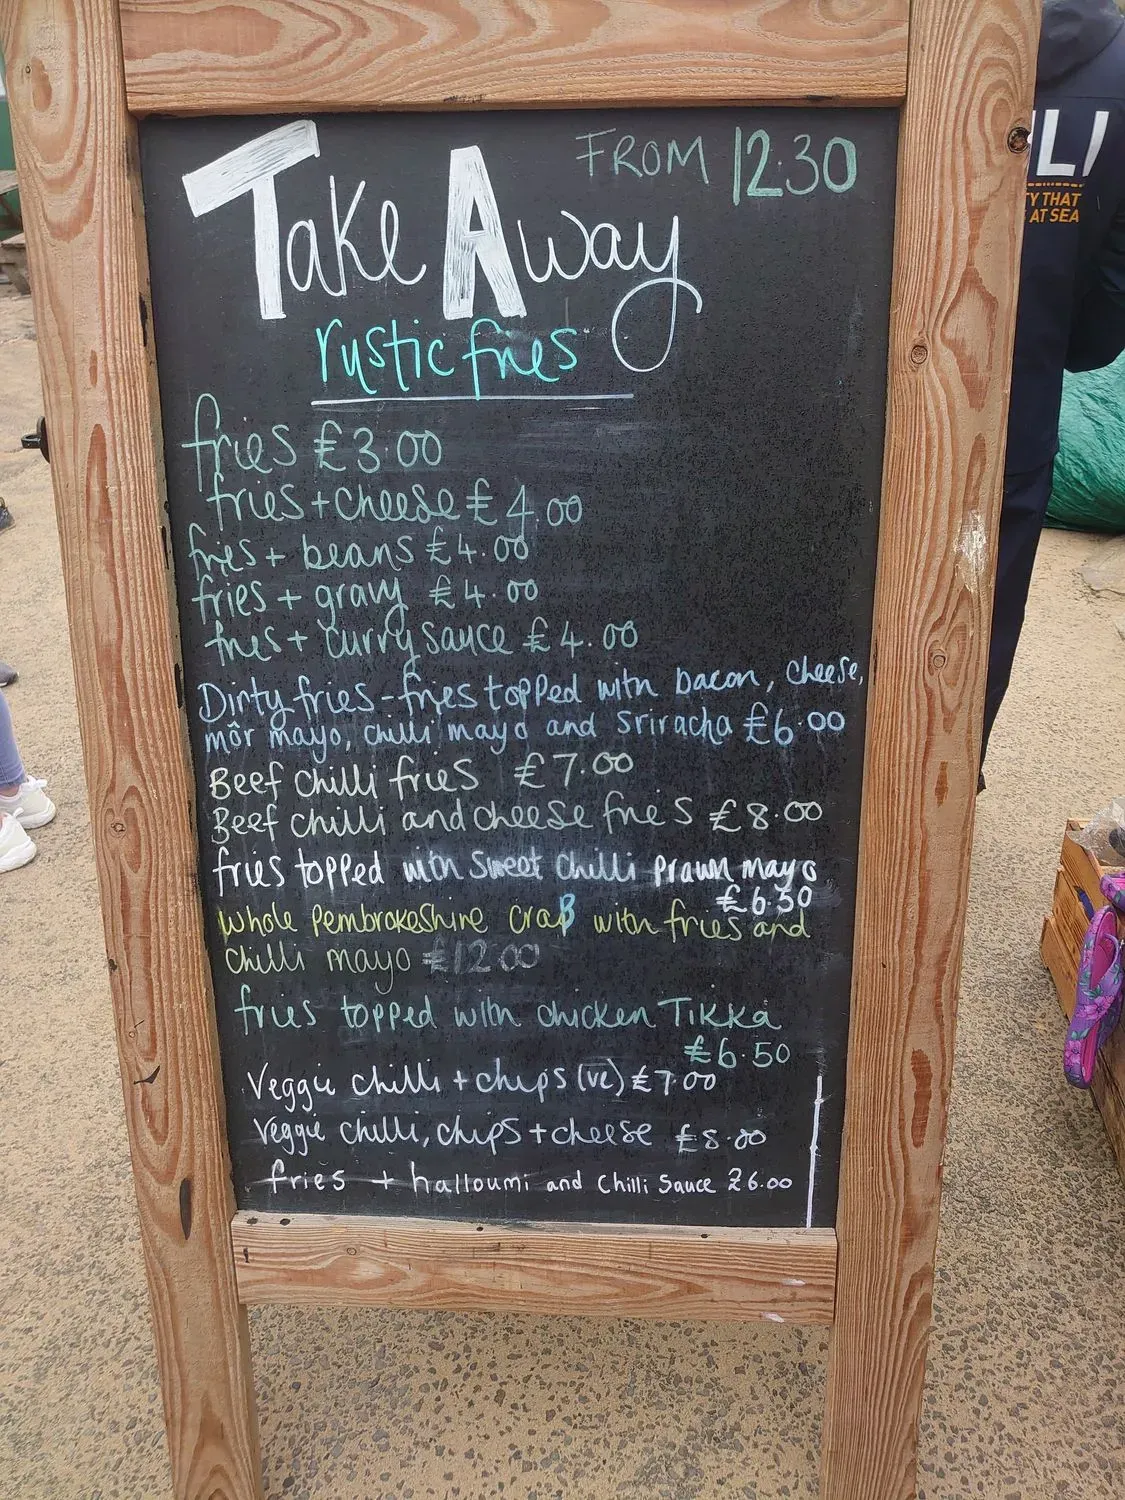 Take Away
FROM 12.30
rustic fries
fries £3.00
fries + cheese £4.00
fries + beans £4.00
fries + gravy £4.00
fries + curry sauce £4.00
Dirty fries - fries topped with bacon, cheese,
môr mayo, chilli mayo and sriracha £6.00
Beef chilli fries £7.00
Beef chilli and cheese fries £8.00
fries topped with sweet chilli prawn mayo
£6.50
whole Pembrokeshire craB with fries and
chilli mayo £12.00
fries topped with chicken Tikka
£6.50
Veggie chilli + chips (ve) £7.00
Veggie chilli, chips + cheese £8.00
fries + halloumi and chilli sauce £6.00
ILI
TY THAT
AT SEA